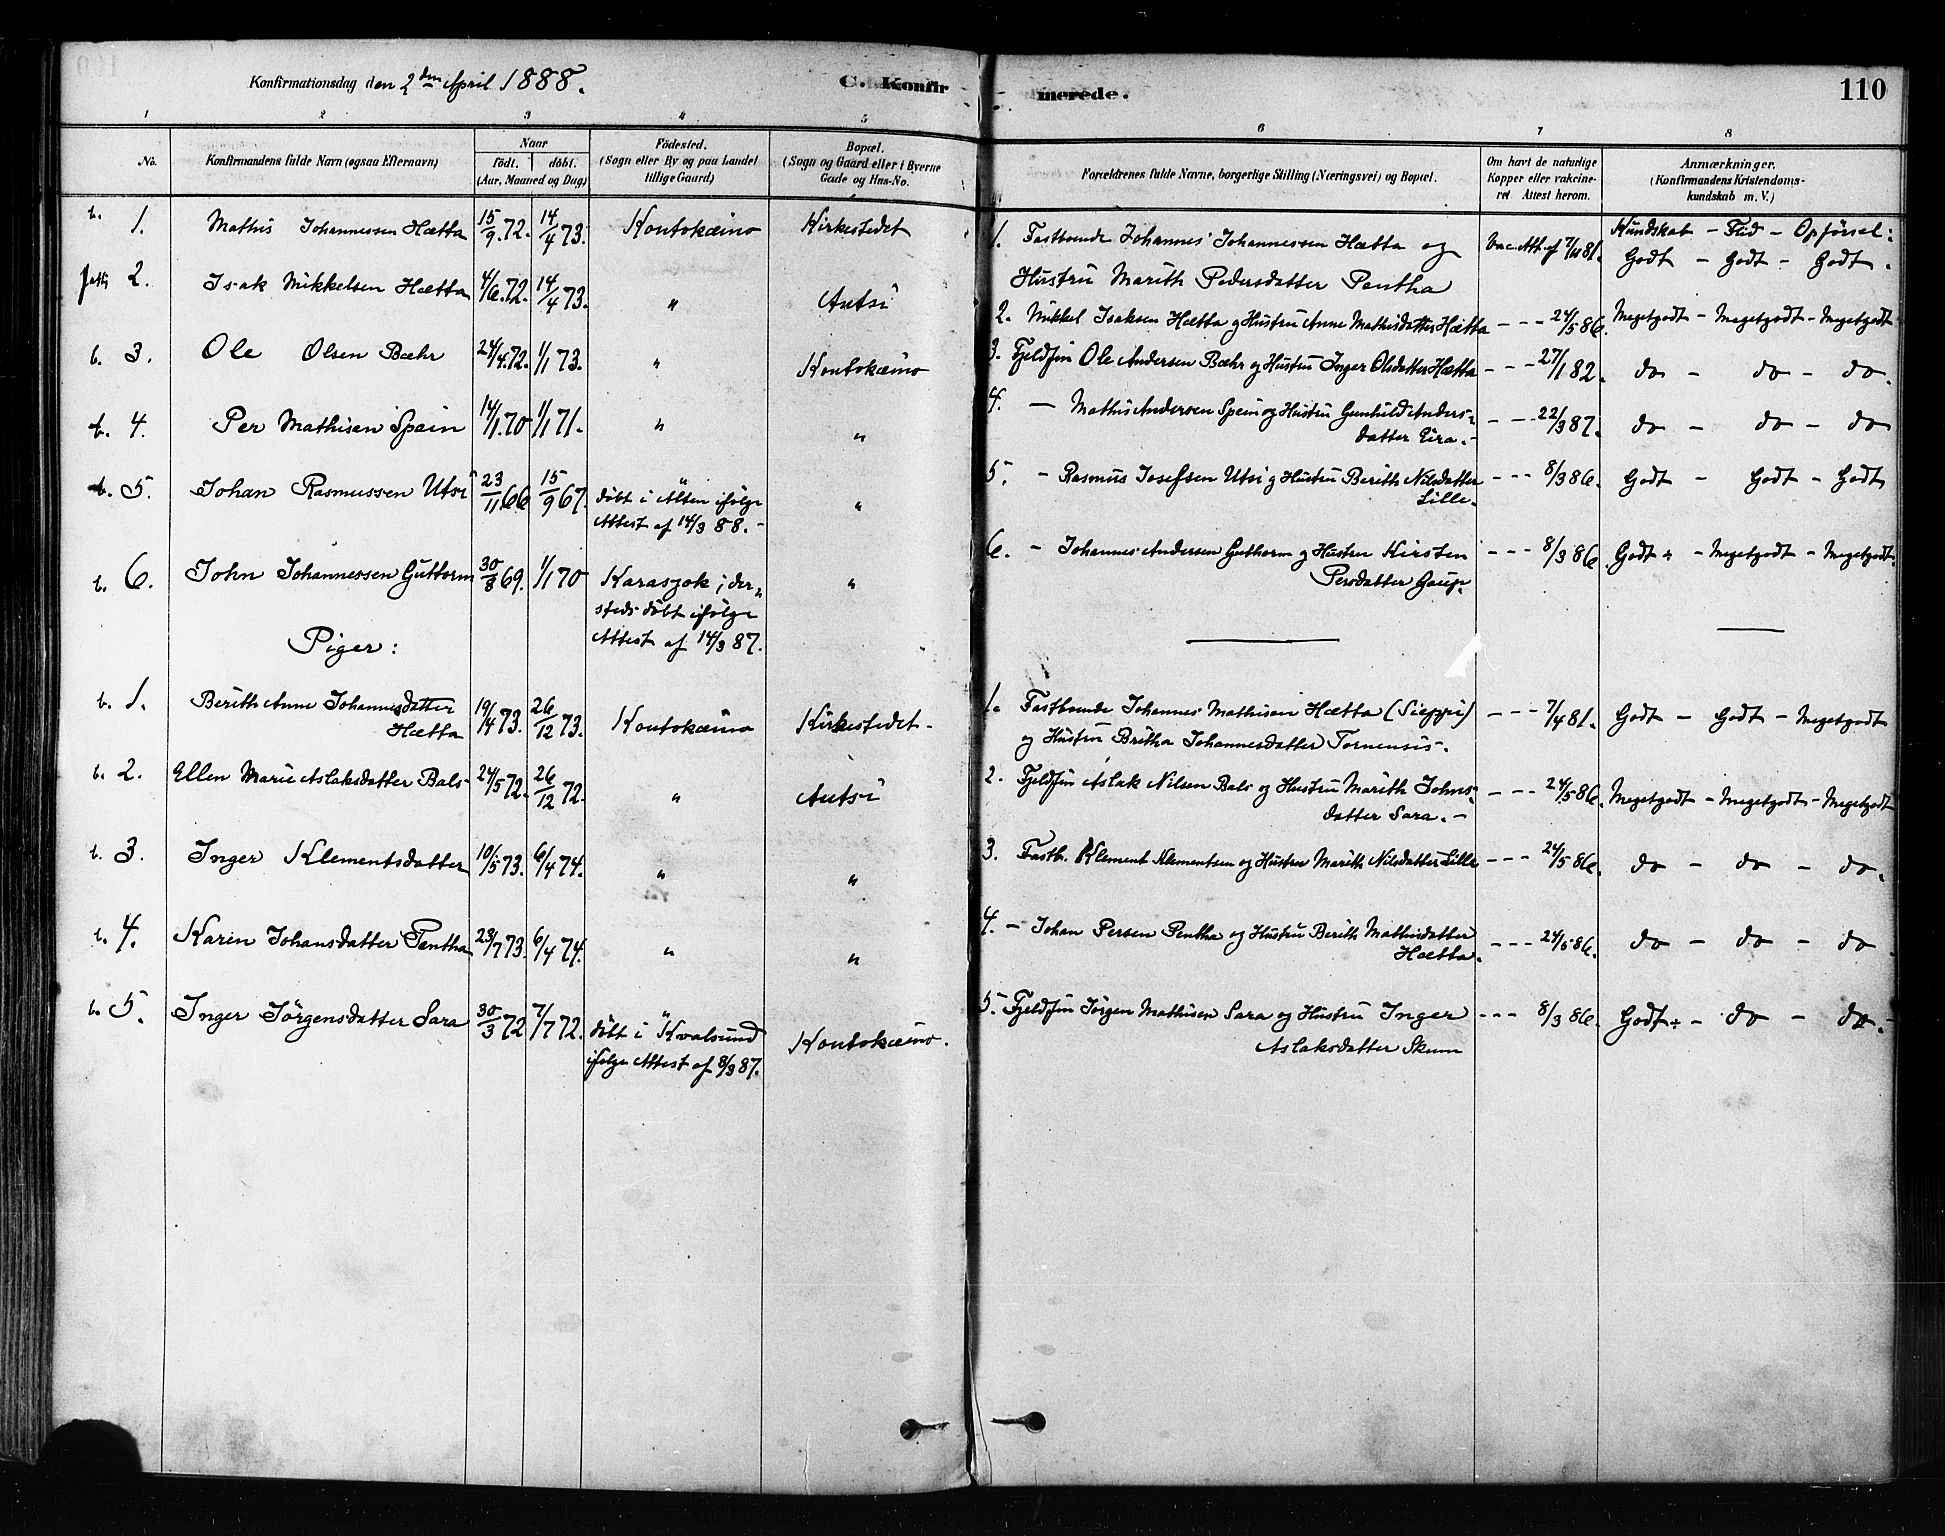 Konfirmationsdag den 2den April 1888.
C. Konfirmerede.
110
1 2 3 4 5 6 7 8
No.
Konfirmandens fulde Navn (ogsaa Efternavn)
Naar
födt. döbt.
(Aar, Maaned og Dag)
Födested.
(Sogn eller By og paa Landet
tillige Gaard)
Bopæl.
(Sogn og Gaard eller i Byerne
Gade og Hus-No.
Forældrenes fulde Navne, borgerlige Stilling (Næringsvei) og Bopæl.
Om havt de naturlige
Kopper eller vakcine-
ret Attest herom.
Anmærkninger.
(Konfirmandens Kristendoms-
kundskab m. V.)
Kundskab - Flid - Opförsel:
1. Mathis Johannessen Hætta 15/9 72. 14/4 73. Koutokæino Kirkestedet
1. Fastboende Johannes Johannessen Hætta og Vac. Att. af 7/4 81. Godt - Godt - Godt.
Hustru Marith Pedersdatter Pentha
2. Isak Mikkelsen Hætta 4/6 72. 14/4 73. " Autsi
2. Mikkel Isaksen Hætta og Hustru Anne Mathisdatter Hætta - - - 24/5 86. Megetgodt - Megetgodt - Megetgodt
b. 3. Ole Olsen Bæhr 24/4 72. 1/1 73. " Koutokæino
3. Fjeldfin Ole Andersen Bæhr og Hustru Inger Olsdatter Hætta - - - 27/1 82. do - do - do.
b. 4. Per Mathisen Spein 14/1 70 1/1 71. " "
4. - Mathis Andersen Spein og Hustru Gunhild Anders-
datter Eira. - - - 22/3 87. do - do - do
b. 5. Johan Rasmussen Utsi 23/11 66 15/9 67. "
döbt i Alten ifölge
Attest af 14/3 88. - "
5. - Rasmus Josefsen Utsi og Hustru Berith Nilsdatter
Lille. - - - 8/3 86. Godt - Godt - Godt
b. 6. John Johannessen Guttorm 30/8 69. 1/1 70 Karasjok; der-
steds döbt ifölge
Attest af 14/3 87. "
6. - Johannes Andersen Guthorm og Hustru Kirsten
Persdatter Gaup. - - - 8/3 86 Godt ÷ - Megetgodt - Megetgodt.
Piger:
b. 1. Berith Anne Johannesdatter
Hætta 19/4 73. 26/12 73. Koutokæino Kirkestedet -
1. Fastboende Johannes Mathisen Hætta (Sieppi) - - - 7/4 81. Godt - Godt - Megetgodt
og Hustru Britha Johannesdatter Tornensis.
b. 2. Ellen Marie Aslaksdatter Bals 24/5 72. 26/12 72. " Autsi
2. Fjeldfin Aslak Nilsen Bals og Hustru Marith Johns-
datter Sara. - - - - 24/5 86. Megetgodt - Megetgodt - Megetgodt
b. 3. Inger Klementsdatter 10/5 73. 6/4 74. " "
3. Fastb. Klement Klementsen og Hustru Marith Nilsdatter Lille - - - 24/5 86. do - do - do.
b. 4. Karen Johansdatter Pentha 23/7 73. 6/4 74. " "
4. - Johan Persen Pentha og Hustru Berith Mathisdatter
Hætta. - - - 24/5 86. do - do - do
b. 5. Inger Jörgensdatter Sara 30/3 72 7/7 72. "
döbt i Kvalsund
ifölge Attest af 8/3 87. Koutokæino.
5. Fjeldfin Jörgen Mathisen Sara og Hustru Inger
Aslaksdatter Skum - - - 8/3 86. Godt ÷ - do - do. -